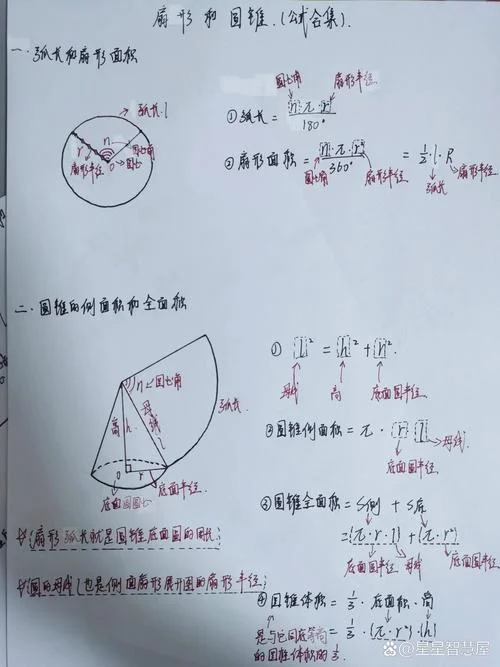 扇形和圆锥.(公式合集).
一.弧长和扇形面积
弧长l
n
圆心角
r
O
圆心
扇形半径
圆心角
扇形半径
①弧长 = n·π·r / 180°
②扇形面积 = n·π·r² / 360° = 1/2·l·R
圆心角
扇形半径
弧长
扇形半径
二.圆锥的侧面积和全面积
n
圆心角
弧长
母线
l
高
h
O
r
底面圆圆心
底面半径
① l² = h² + r².
母线
高
底面圆半径
②圆锥侧面积 = π·r·l
底面圆半径
母线
③圆锥全面积 = S侧 + S底
=(π·r·l)+(π·r²)
底面圆半径
母线
底面圆半径
扇形弧长就是圆锥底面圆的周长;
圆的母线l也是侧面扇形展开图的扇形半径;
④圆锥体积 = 1/3·底面积·高
= 1/3·(π·r²)·(h)
是与它同底等高
的圆柱体积的1/3.
@星星智慧屋